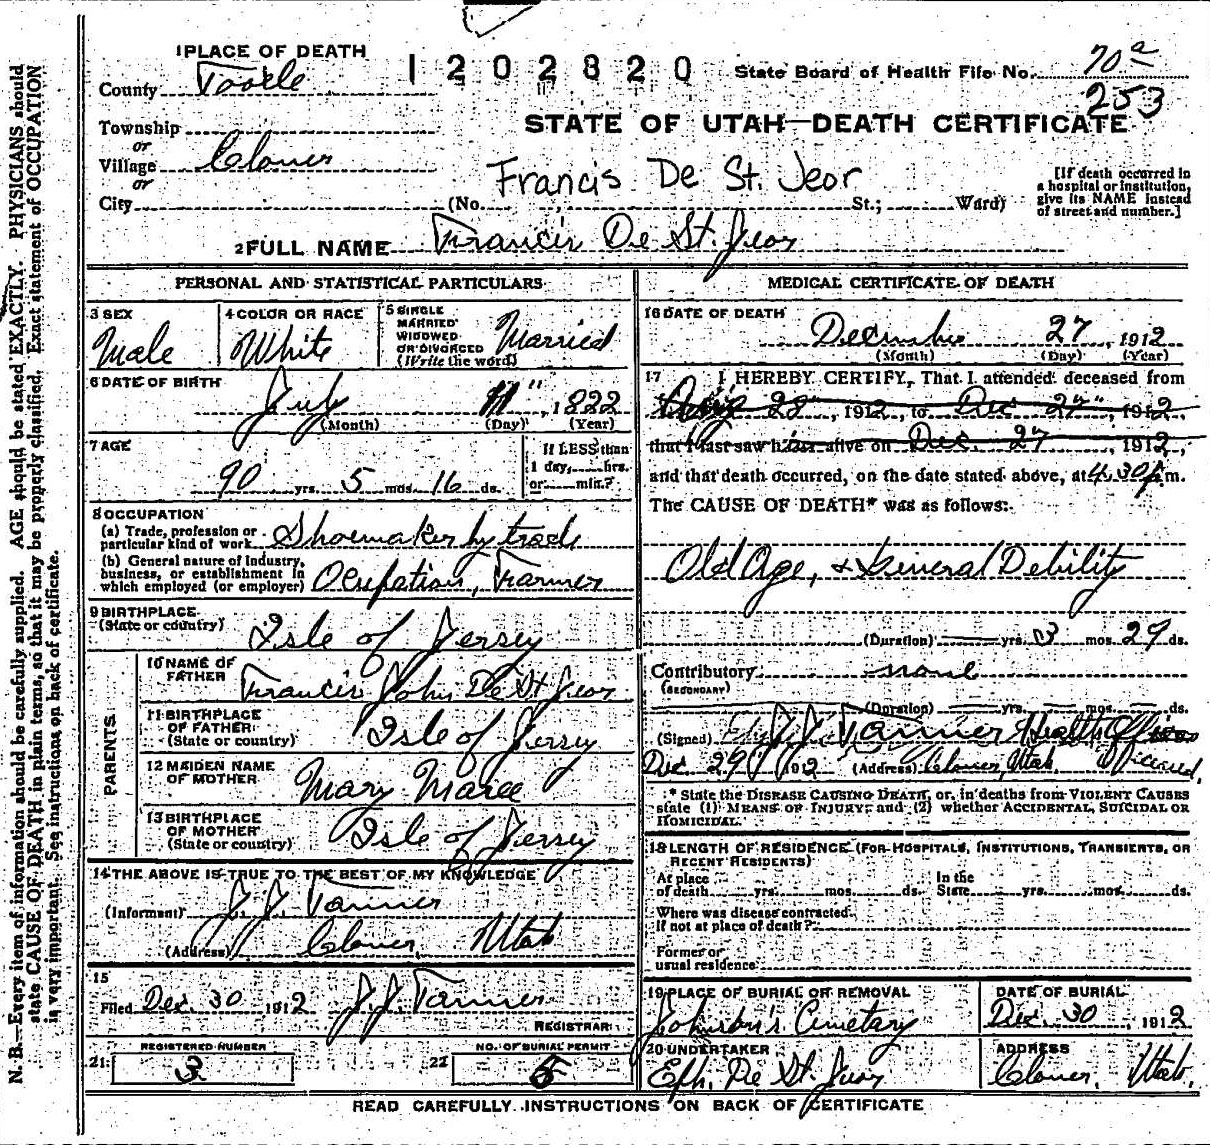 1 PLACE OF DEATH
County Tooele
1202820
State Board of Health File No. 70a
253
Township
or
Village Clover
or
City
STATE OF UTAH—DEATH CERTIFICATE
Francis De St. Jeor
(No. St.; Ward)
[If death occurred in
a hospital or institution,
give its NAME instead
of street and number.]
2 FULL NAME Francis De St. Jeor
PERSONAL AND STATISTICAL PARTICULARS
3 SEX
Male
4 COLOR OR RACE
White
5 SINGLE
MARRIED
WIDOWED
OR DIVORCED
(Write the word)
Married
6 DATE OF BIRTH
July 11", 1822
(Month) (Day) (Year)
7 AGE
90 yrs. 5 mos. 16 ds.
If LESS than
1 day, hrs.
or min.?
8 OCCUPATION
(a) Trade, profession or
particular kind of work Shoemaker by trade
(b) General nature of industry,
business, or establishment in
which employed (or employer) Ocupation, Farmer
9 BIRTHPLACE
(State or country) Isle of Jersey
PARENTS
10 NAME OF
FATHER Francis John De St Jeor
11 BIRTHPLACE
OF FATHER
(State or country) Isle of Jersey
12 MAIDEN NAME
OF MOTHER Mary Maree
13 BIRTHPLACE
OF MOTHER
(State or country) Isle of Jersey
14 THE ABOVE IS TRUE TO THE BEST OF MY KNOWLEDGE
(Informant) J. J. Tanner
(Address) Clover, Utah
15
Filed Dec. 30 1912 J. J. Tanner
REGISTRAR
21 REGISTERED NUMBER
3
22 NO. OF BURIAL PERMIT
5
MEDICAL CERTIFICATE OF DEATH
16 DATE OF DEATH
December 27, 1912
(Month) (Day) (Year)
17 I HEREBY CERTIFY, That I attended deceased from
28", 1912, to Dec 27", 1912,
that I last saw him alive on Dec. 27 1912,
and that death occurred, on the date stated above, at 4.30 p.m.
The CAUSE OF DEATH* was as follows:
Old Age, & General Debility
(Duration) yrs. 3 mos. 29 ds.
Contributory none
(SECONDARY)
(Duration) yrs. mos. ds.
(Signed) J. J. Tanner Health Officer
Dec 29 1912 (Address) Clover, Utah.
* State the DISEASE CAUSING DEATH, or, in deaths from VIOLENT CAUSES
state (1) MEANS OF INJURY; and (2) whether ACCIDENTAL, SUICIDAL OR
HOMICIDAL.
18 LENGTH OF RESIDENCE (FOR HOSPITALS, INSTITUTIONS, TRANSIENTS, OR
RECENT RESIDENTS)
At place
of death yrs. mos. ds.
In the
State yrs. mos. ds.
Where was disease contracted,
If not at place of death?
Former or
usual residence
19 PLACE OF BURIAL OR REMOVAL
Johnson's Cemetary
DATE OF BURIAL
Dec. 30, 1912
20 UNDERTAKER
Eph. De St. Jeor
ADDRESS
Clover, Utah.
READ CAREFULLY INSTRUCTIONS ON BACK OF CERTIFICATE
N. B.—Every item of information should be carefully supplied. AGE should be stated EXACTLY. PHYSICIANS should
state CAUSE OF DEATH in plain terms, so that it may be properly classified. Exact statement of OCCUPATION
is very important. See instructions on back of certificate.